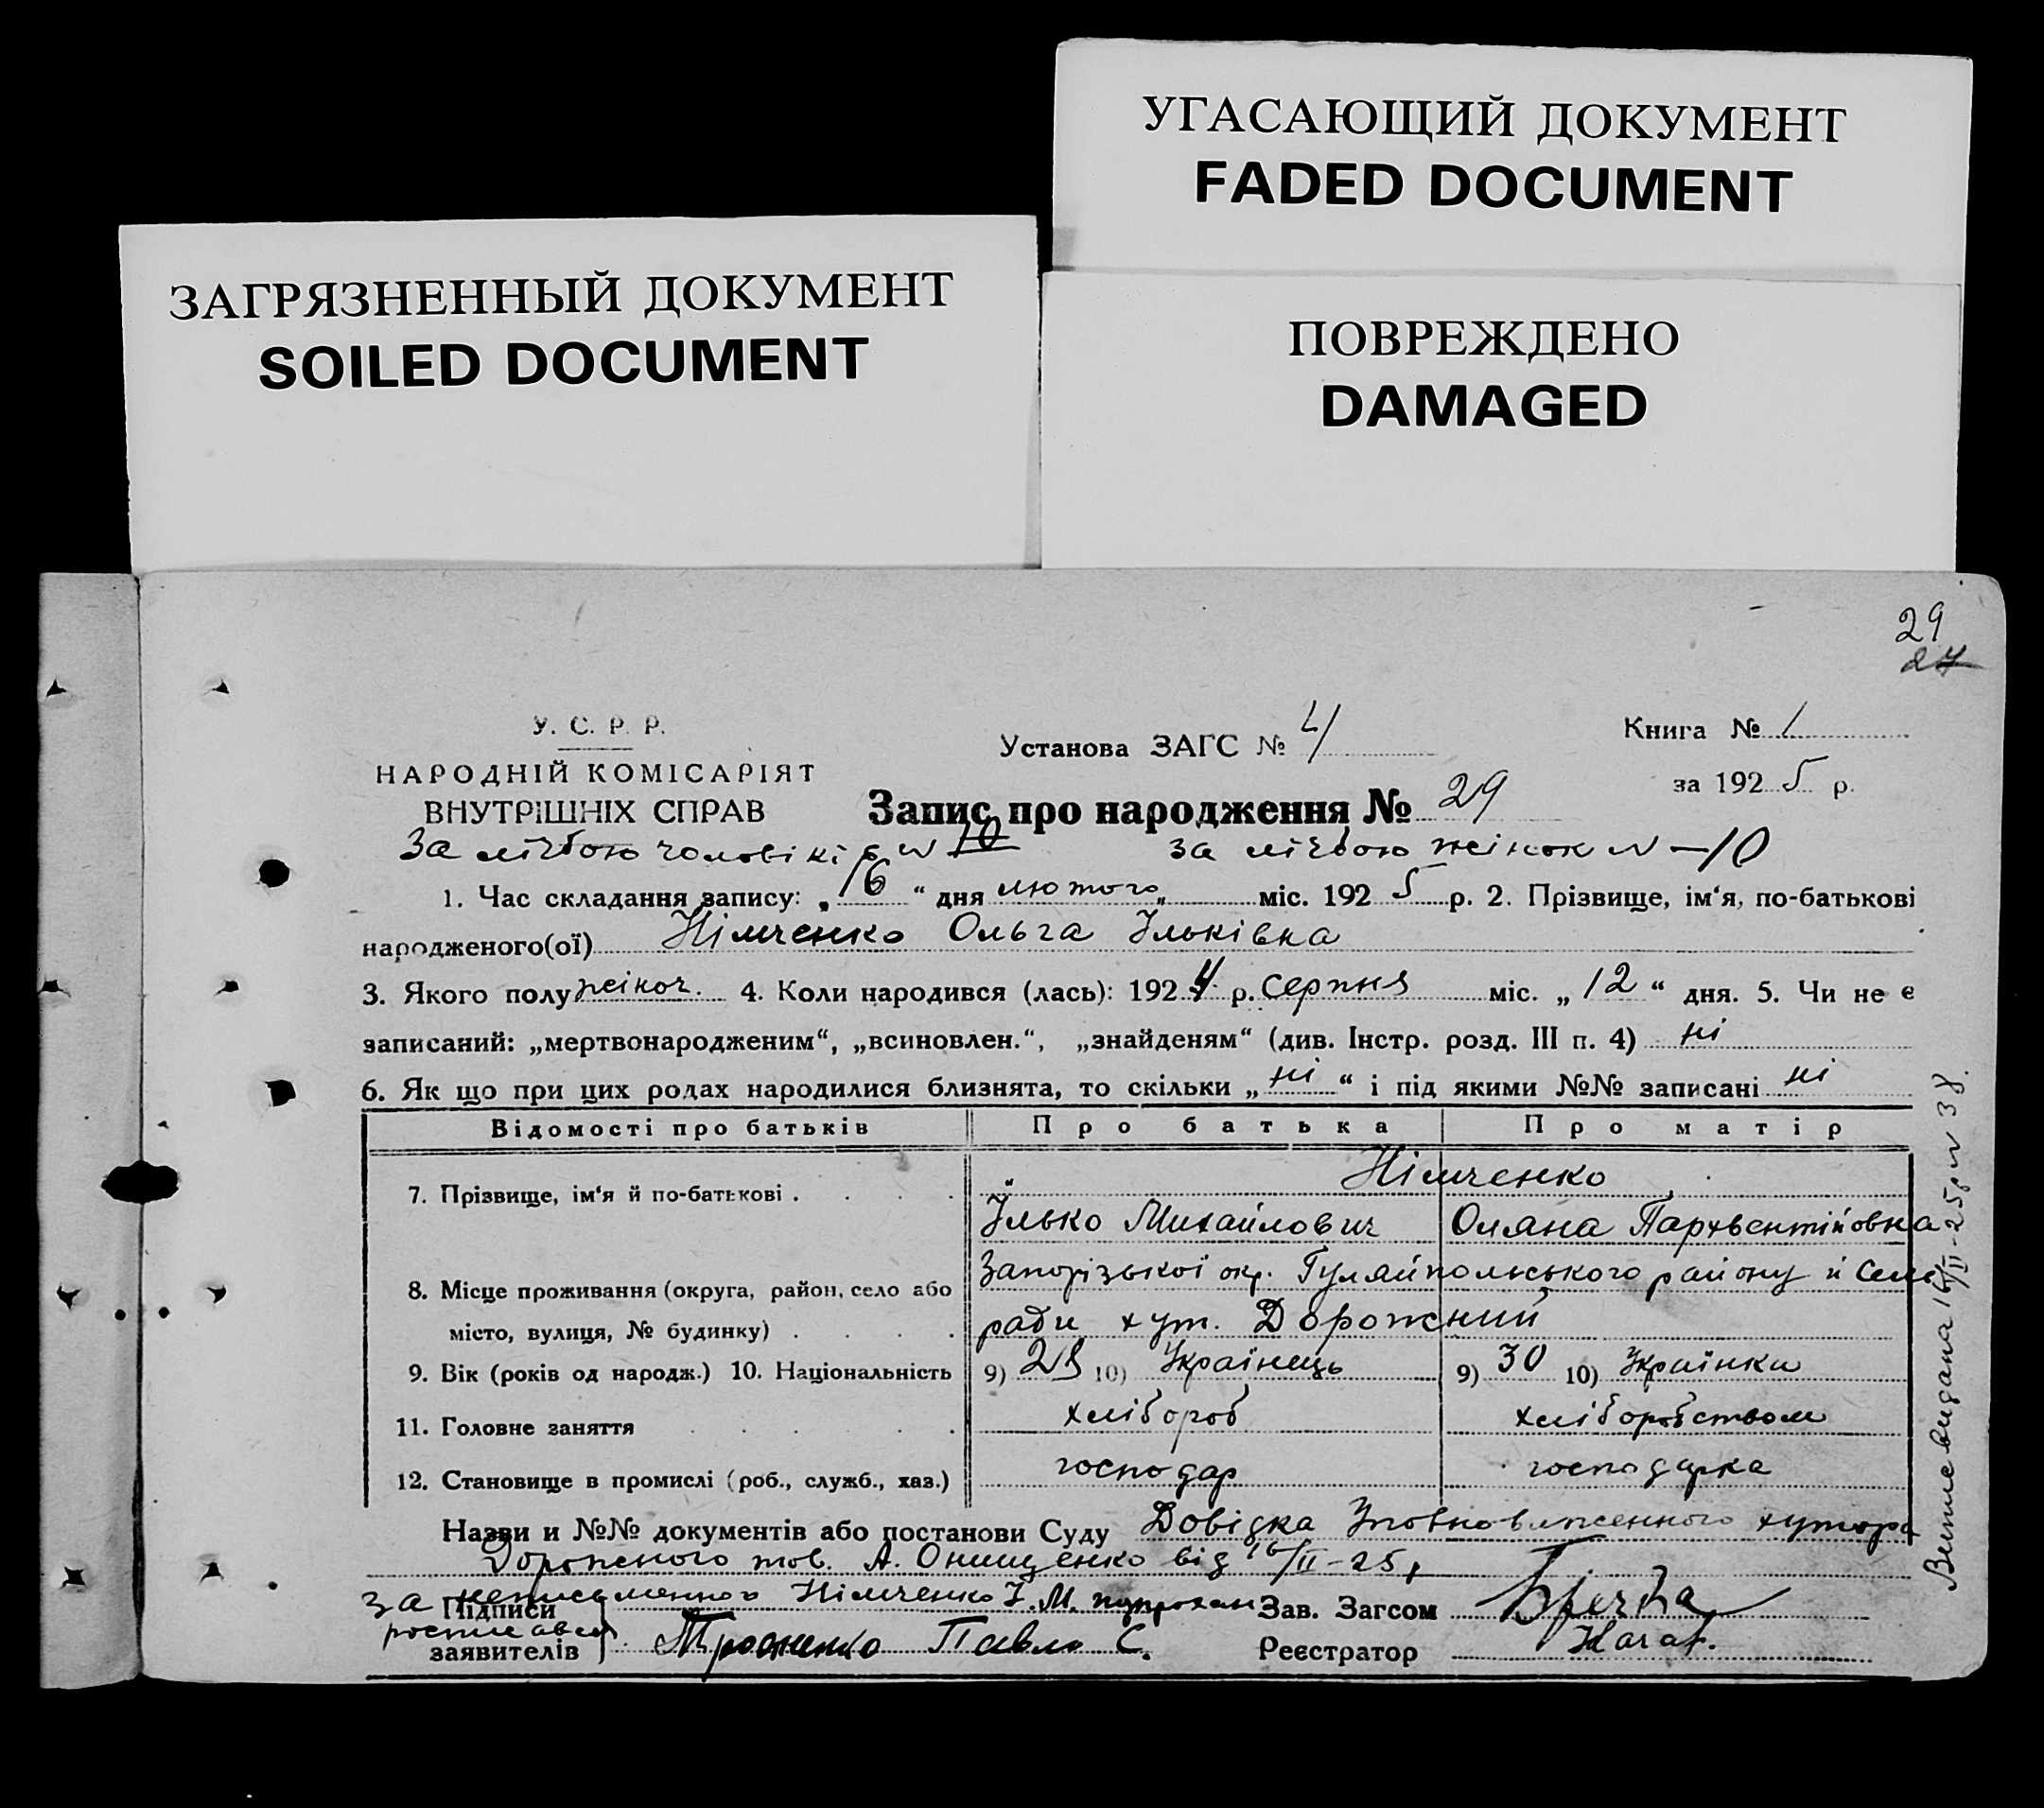 УГАСАЮЩИЙ ДОКУМЕНТ
FADED DOCUMENT
ЗАГРЯЗНЕННЫЙ ДОКУМЕНТ
SOILED DOCUMENT
ПОВРЕЖДЕНО
DAMAGED
29
27
У. С. Р. Р.
НАРОДНІЙ КОМІСАРІЯТ
ВНУТРІШНІХ СПРАВ
Установа ЗАГС № 4
Книга № 1
за 1925 р.
Запис про народження № 29
За лічбою чоловіків № 10 за лічбою жінок № — 10
1. Час складання запису: „ 16 “ дня лютого міс. 1925 р. 2. Прізвище, ім‘я, по-батькові
народженого(ої) Німченко Ольга Ільківна
3. Якого полу жіноч. 4. Коли народився (лась): 1924 р. серпня міс. „ 12 “ дня. 5. Чи не є
записаний: „мертвонародженим“, „всиновлен.“, „знайденям“ (див. Інстр. розд. III п. 4) ні
6. Як що при цих родах народилися близнята, то скільки „ ні “ і під якими №№ записані ні
Відомості про батьків Про батька Про матір
7. Прізвище, ім‘я й по-батькові . . . . Німченко
Ілько Михайлович Оляна Пархвентійовна
8. Місце проживання (округа, район, село або Запорізької окр. Гуляйпольського району й Сель
місто, вулиця, № будинку) . . . . ради хут. Дорожний
9. Вік (років од народж.) 10. Національність 9) 28 10) Українець 9) 30 10) Українка
11. Головне заняття хлібороб хліборобством
12. Становище в промислі (роб., служб., хаз.) господар господарка
Назви и №№ документів або постанови Суду Довідка Уповноваженного хутора
Дорожного тов. А. Онищенко від 16/II-25р
за неписьменного Німченко І. М.
Підписи
Зав. Загсом
росписався
заявителів Павло С.
Реєстратор
видана 16/II-25р № 38.